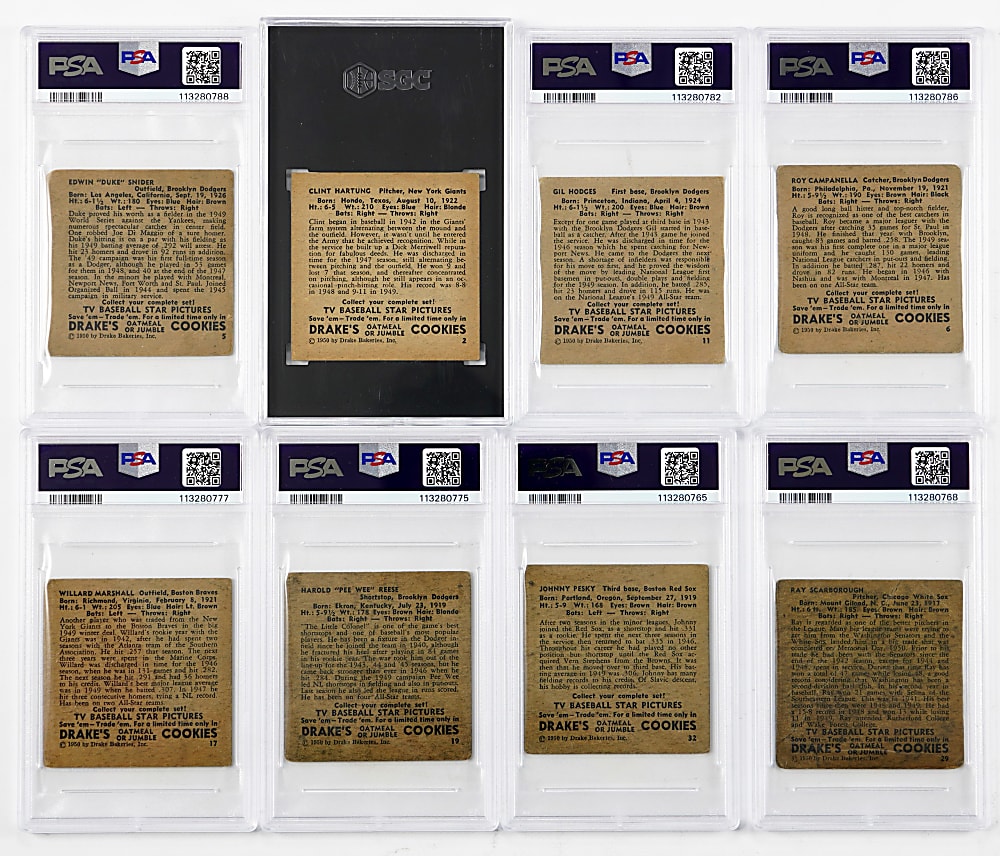 PSA PSA
113280788
EDWIN "DUKE" SNIDER
Outfield, Brooklyn Dodgers
Born: Los Angeles, California, Sept. 19, 1926
Ht.: 6-1½ Wt.: 180 Eyes: Blue Hair: Brown
Bats: Left — Throws: Right
Duke proved his worth as a fielder in the 1949
World Series against the Yankees, making
numerous spectacular catches in center field.
One robbed Joe Di Maggio of a sure homer.
Duke's hitting is on a par with his fielding as
his 1949 batting average of .292 will attest. He
hit 23 homers and drove in 92 runs in addition.
The '49 campaign was his first full-time season
as a Dodger, although he played in 53 games
for them in 1948, and 40 at the end of the 1947
season. In the minors, he was with Montreal,
Newport News, Fort Worth and St. Paul. Joined
Organized Ball in 1944 and spent the 1945
campaign in military service.
Collect your complete set!
TV BASEBALL STAR PICTURES
Save 'em—Trade 'em. For a limited time only in
DRAKE'S OATMEAL OR JUMBLE COOKIES
© 1950 by Drake Bakeries, Inc. 5
SGC
CLINT HARTUNG Pitcher, New York Giants
Born: Hondo, Texas, August 10, 1922
Ht.: 6-5 Wt.: 210 Eyes: Blue Hair: Blonde
Bats: Right — Throws: Right
Clint began in baseball in 1942 in the Giants'
farm system alternating between the mound and
the outfield. However, it wasn't until he entered
the Army that he achieved recognition. While in
the service he built up a Dick Merriwell reputa-
tion for fabulous deeds. He was discharged in
time for the 1947 season, still alternating be-
tween pitching and the outfield. He won 9 and
lost 7 that season, and thereafter concentrated
on pitching, although he still appears in an oc-
casional pinch-hitting role. His record was 8-8
in 1948 and 9-11 in 1949.
Collect your complete set!
TV BASEBALL STAR PICTURES
Save 'em—Trade 'em. For a limited time only in
DRAKE'S OATMEAL OR JUMBLE COOKIES
© 1950 by Drake Bakeries, Inc. 2
PSA PSA
113280782
GIL HODGES First base, Brooklyn Dodgers
Born: Princeton, Indiana, April 4, 1924
Ht.: 6-1½ Wt.: 200 Eyes: Blue Hair: Brown
Bats: Right — Throws: Right
Except for one game played at third base in 1943
with the Brooklyn Dodgers Gil started in base-
ball as a catcher. After the 1943 game he joined
the service. He was discharged in time for the
1946 season which he spent catching for New-
port News. He came to the Dodgers the next
season. A shortage of infielders was responsible
for his move to first, and he proved the wisdom
of the move by leading National League first
basemen in putouts, double plays and fielding
for the 1949 season. In addition, he batted .285,
hit 23 homers and drove in 115 runs. He was
on the National League's 1949 All-Star team.
Collect your complete set!
TV BASEBALL STAR PICTURES
Save 'em—Trade 'em. For a limited time only in
DRAKE'S OATMEAL OR JUMBLE COOKIES
© 1950 by Drake Bakeries, Inc. 11
PSA PSA
113280786
ROY CAMPANELLA Catcher, Brooklyn Dodgers
Born: Philadelphia, Pa., November 19, 1921
Ht.: 5-9½ Wt.: 190 Eyes: Brown Hair: Black
Bats: Right — Throws: Right
A good long ball hitter and top-notch fielder,
Roy is recognized as one of the best catchers in
baseball. Roy became a major leaguer with the
Dodgers after catching 35 games for St. Paul in
1948. He finished that year with Brooklyn,
caught 83 games and batted .258. The 1949 sea-
son was his first complete one in a major league
uniform and he caught 130 games, leading
National League catchers in put-outs and fielding.
In addition he batted .287, hit 22 homers and
drove in 82 runs. He began in 1946 with
Nashua and was with Montreal in 1947. Has
been on one All-Star team.
Collect your complete set!
TV BASEBALL STAR PICTURES
Save 'em—Trade 'em. For a limited time only in
DRAKE'S OATMEAL OR JUMBLE COOKIES
© 1950 by Drake Bakeries, Inc. 6
PSA PSA
113280777
WILLARD MARSHALL Outfield, Boston Braves
Born: Richmond, Virginia, February 8, 1921
Ht.: 6-1 Wt.: 205 Eyes: Blue Hair: Lt. Brown
Bats: Left — Throws: Right
Another player who was traded from the New
York Giants to the Boston Braves in the big
1949 winter deal. Willard's rookie year with the
Giants was in 1942, after he had spent two
seasons with the Atlanta team of the Southern
Association. He hit .257 that season. The next
three years were spent in the Marine Corps.
Willard was discharged in time for the 1946
season, when he was in 131 games and hit .282.
The next season he hit .291 and had 36 homers
to his credit. Willard's best major league average
was in 1949 when he batted .307. In 1947 he
hit three consecutive homers, tying a NL record.
Has been on two All-Star teams.
Collect your complete set!
TV BASEBALL STAR PICTURES
Save 'em—Trade 'em. For a limited time only in
DRAKE'S OATMEAL OR JUMBLE COOKIES
© 1950 by Drake Bakeries, Inc. 17
PSA PSA
113280775
HAROLD "PEE WEE" REESE
Shortstop, Brooklyn Dodgers
Born: Ekron, Kentucky, July 23, 1919
Ht.: 5-9½ Wt.: 178 Eyes: Brown Hair: Blonde
Bats: Right — Throws: Right
"The Little Colonel" is one of the game's best
shortstops and one of baseball's most popular
players. He has been a fixture in the Dodger in-
field since he joined the team in 1940, although
he fractured his heel after playing in 84 games
in his rookie year. The war kept him out of the
line-up for the 1943, 44 and 45 season, but he
returned stronger than ever in 1946 when he
hit .284. During the 1949 campaign Pee Wee
led NL shortstops in fielding and also in putouts.
Last season he also led the league in runs scored.
He has been on four All-Star teams.
Collect your complete set!
TV BASEBALL STAR PICTURES
Save 'em—Trade 'em. For a limited time only in
DRAKE'S OATMEAL OR JUMBLE COOKIES
© 1950 by Drake Bakeries, Inc. 19
PSA PSA
113280765
JOHNNY PESKY Third base, Boston Red Sox
Born: Portland, Oregon, September 27, 1919
Ht.: 5-9 Wt.: 168 Eyes: Brown Hair: Brown
Bats: Left — Throws: Right
After two seasons in the minor leagues, Johnny
joined the Red Sox, as a shortstop and hit .331
as a rookie. He spent the next three seasons in
the service then returned to hit .335 in 1946.
Throughout his career he had played no other
position but shortstop until the Red Sox ac-
quired Vern Stephens from the Browns. It was
then that he moved over to third base. His bat-
ting average in 1949 was .306. Johnny has many
fielding records to his credit. Of Slavic descent,
his hobby is collecting records.
Collect your complete set!
TV BASEBALL STAR PICTURES
Save 'em—Trade 'em. For a limited time only in
DRAKE'S OATMEAL OR JUMBLE COOKIES
© 1950 by Drake Bakeries, Inc. 32
PSA PSA
113280768
RAY SCARBOROUGH
Pitcher, Chicago White Sox
Born: Mount Gilead, N. C., June 23, 1917
Ht.: 6 Wt.: 185 Eyes: Brown Hair: Brown
Bats: Right — Throws: Right
Ray is regarded as one of the better pitchers in
TV BASEBALL STAR PICTURES
Save 'em—Trade 'em. For a limited time only in
DRAKE'S OATMEAL OR JUMBLE COOKIES
© 1950 by Drake Bakeries, Inc. 29